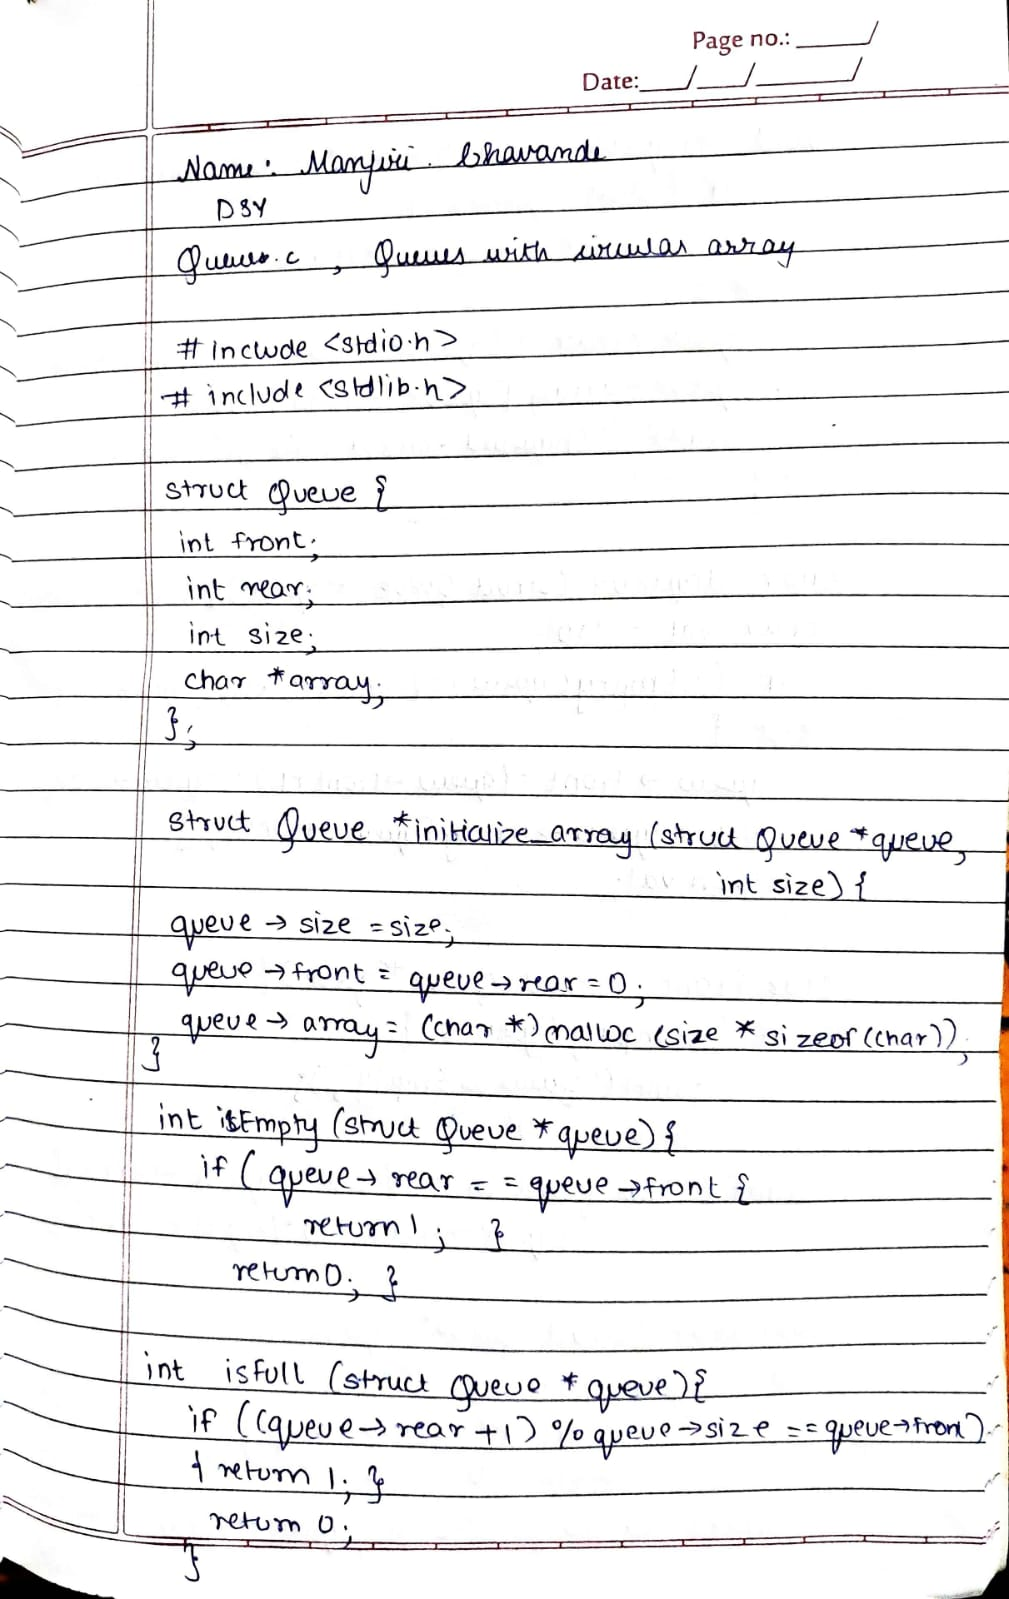 Page no.:
Date:
Name: Manjiri. Bhavande
DSY
Queues.c , Queues with circular array
# include <stdio.h>
# include <stdlib.h>
struct Queue {
int front;
int rear;
int size;
char *array;
};
struct Queue *initialize_array (struct Queue *queue,
int size) {
queue → size = size;
queue → front = queue → rear = 0;
queue → array = (char *) malloc (size * sizeof(char));
}
int isEmpty (struct Queue * queue) {
if ( queue → rear = = queue → front {
return 1; }
return 0; }
int isfull (struct Queue * queue) {
if ((queue → rear +1) % queue → size == queue → front)
{ return 1; }
return 0;
}